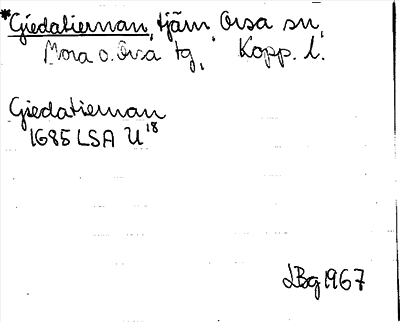 *Giedatiernan, tjärn Orsa sn,
Mora o. Orsa tg, Kopp. l.
Giedatiernan
1685 LSA U¹⁸
LBg 1967